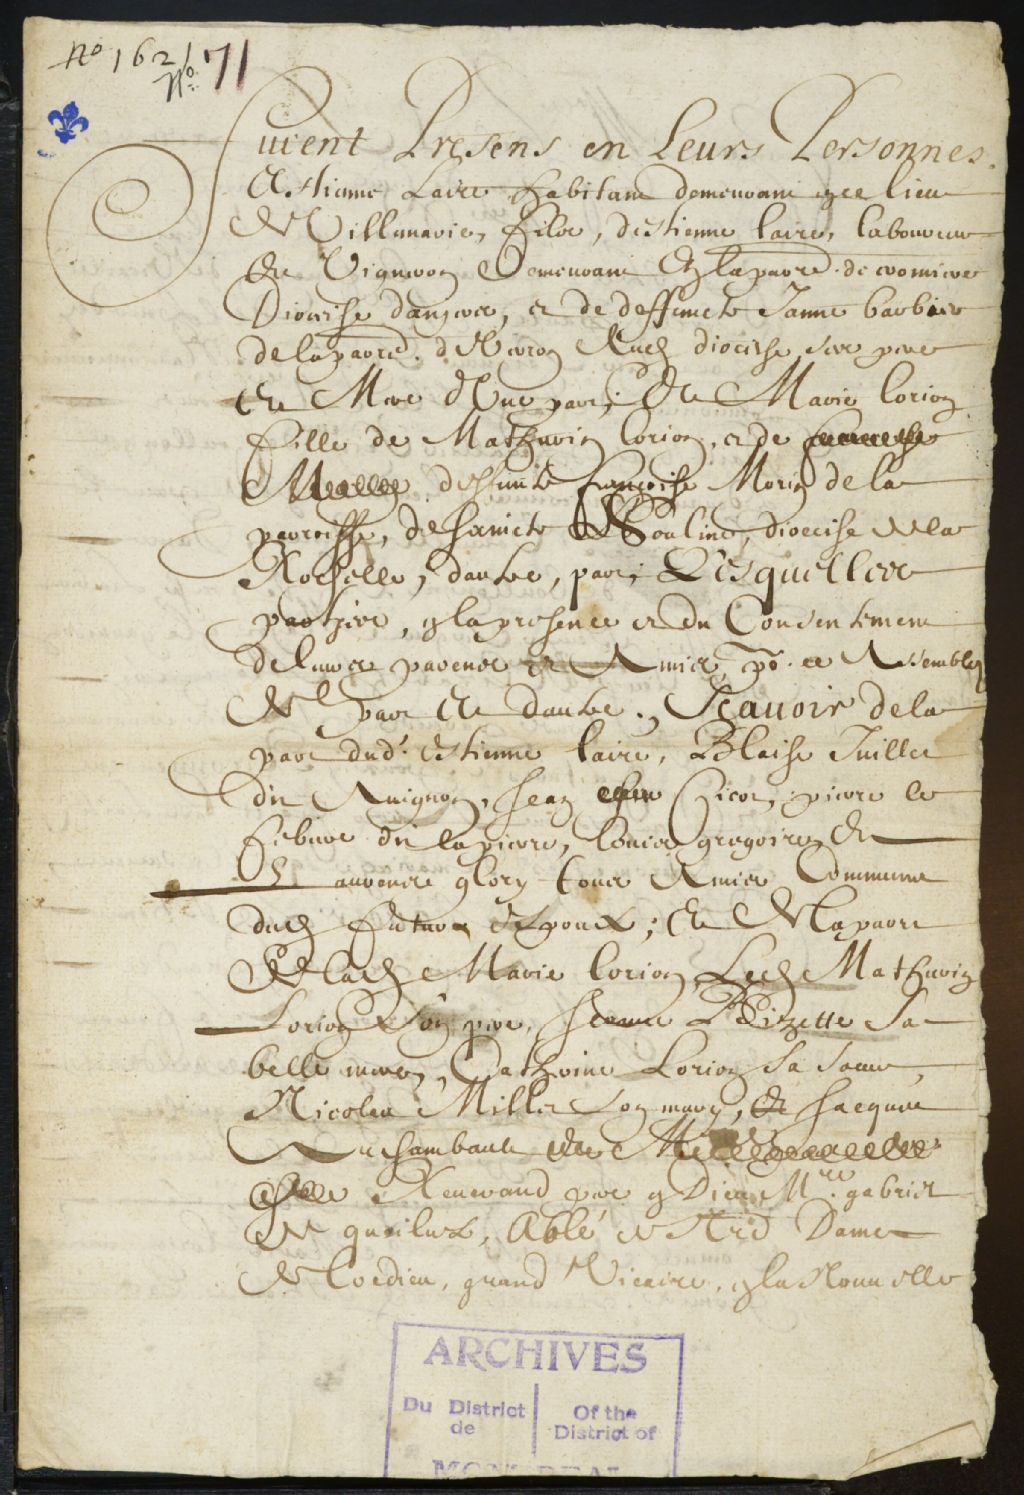 No 162
No. 71
furent Presens en Leurs Personnes.
Estienne Lair habitant demeurant en ce lieu
de Villemarie, fils, d'estienne lair, laboureur
Et Vigneron Demeurant En la parre. de
Diocese d'angers, et de deffuncte Janne barbier
de la parre. d diocese ses pere
Et Mere d'Une part; Et Marie lorion
fille de Mathurin lorion, et de
deffuncte francoise Morin de la
parroisse, de saincte Soulinne, diocese de la
Rochelle, d'autre, part; Lesquelles
parties, en la presence et du Consentement
de leurs parens et Amis, po. ce Assemblez
De part Et d'autre., Scavoir de la
part dud. Estienne lair, Blaise Juillet
dit Avignon, Jean Cicot, pierre le
febure dit lapierre, louis gregoire Et
Laurens glory tous Amis Communs
dud futur Espoux; Et De la part
De lad Marie lorion, Led Mathurin
Lorion Son pere, Jeanne Bizette Sa
belle mere, Catherine Lorion Sa soeur,
Nicolas Millet Son mary, Et Jacques
Archambault
Reverend pere en Dieu Mre. gabriel
de queilus, Abbé de Nre Dame
de Locdieu, grand Vicaire, en la Nouvelle
ARCHIVES
Du District
de
Of the
District of
MONTREAL